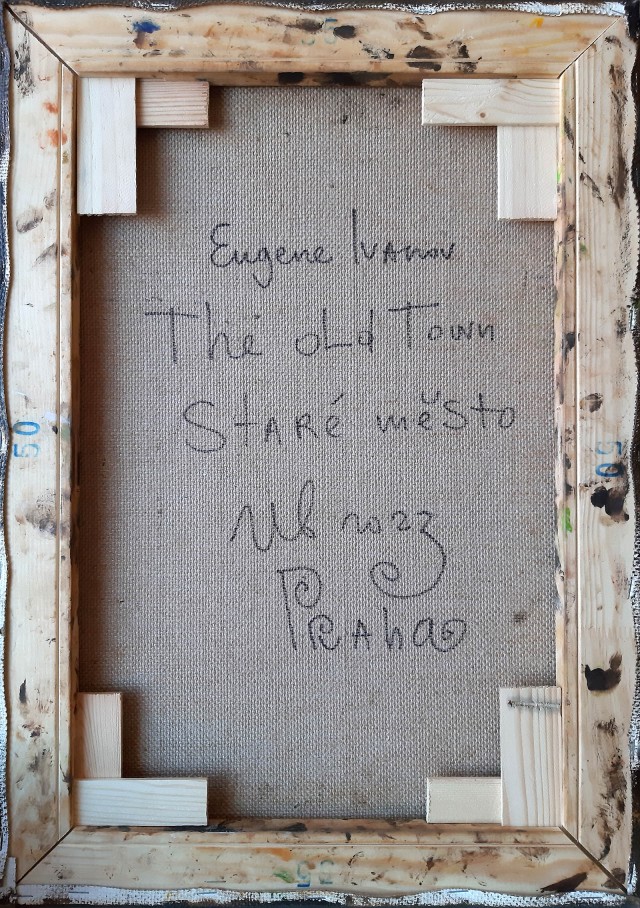 35
Eugene Ivanov
The old Town
Staré město
50
50
2023
Praha
35